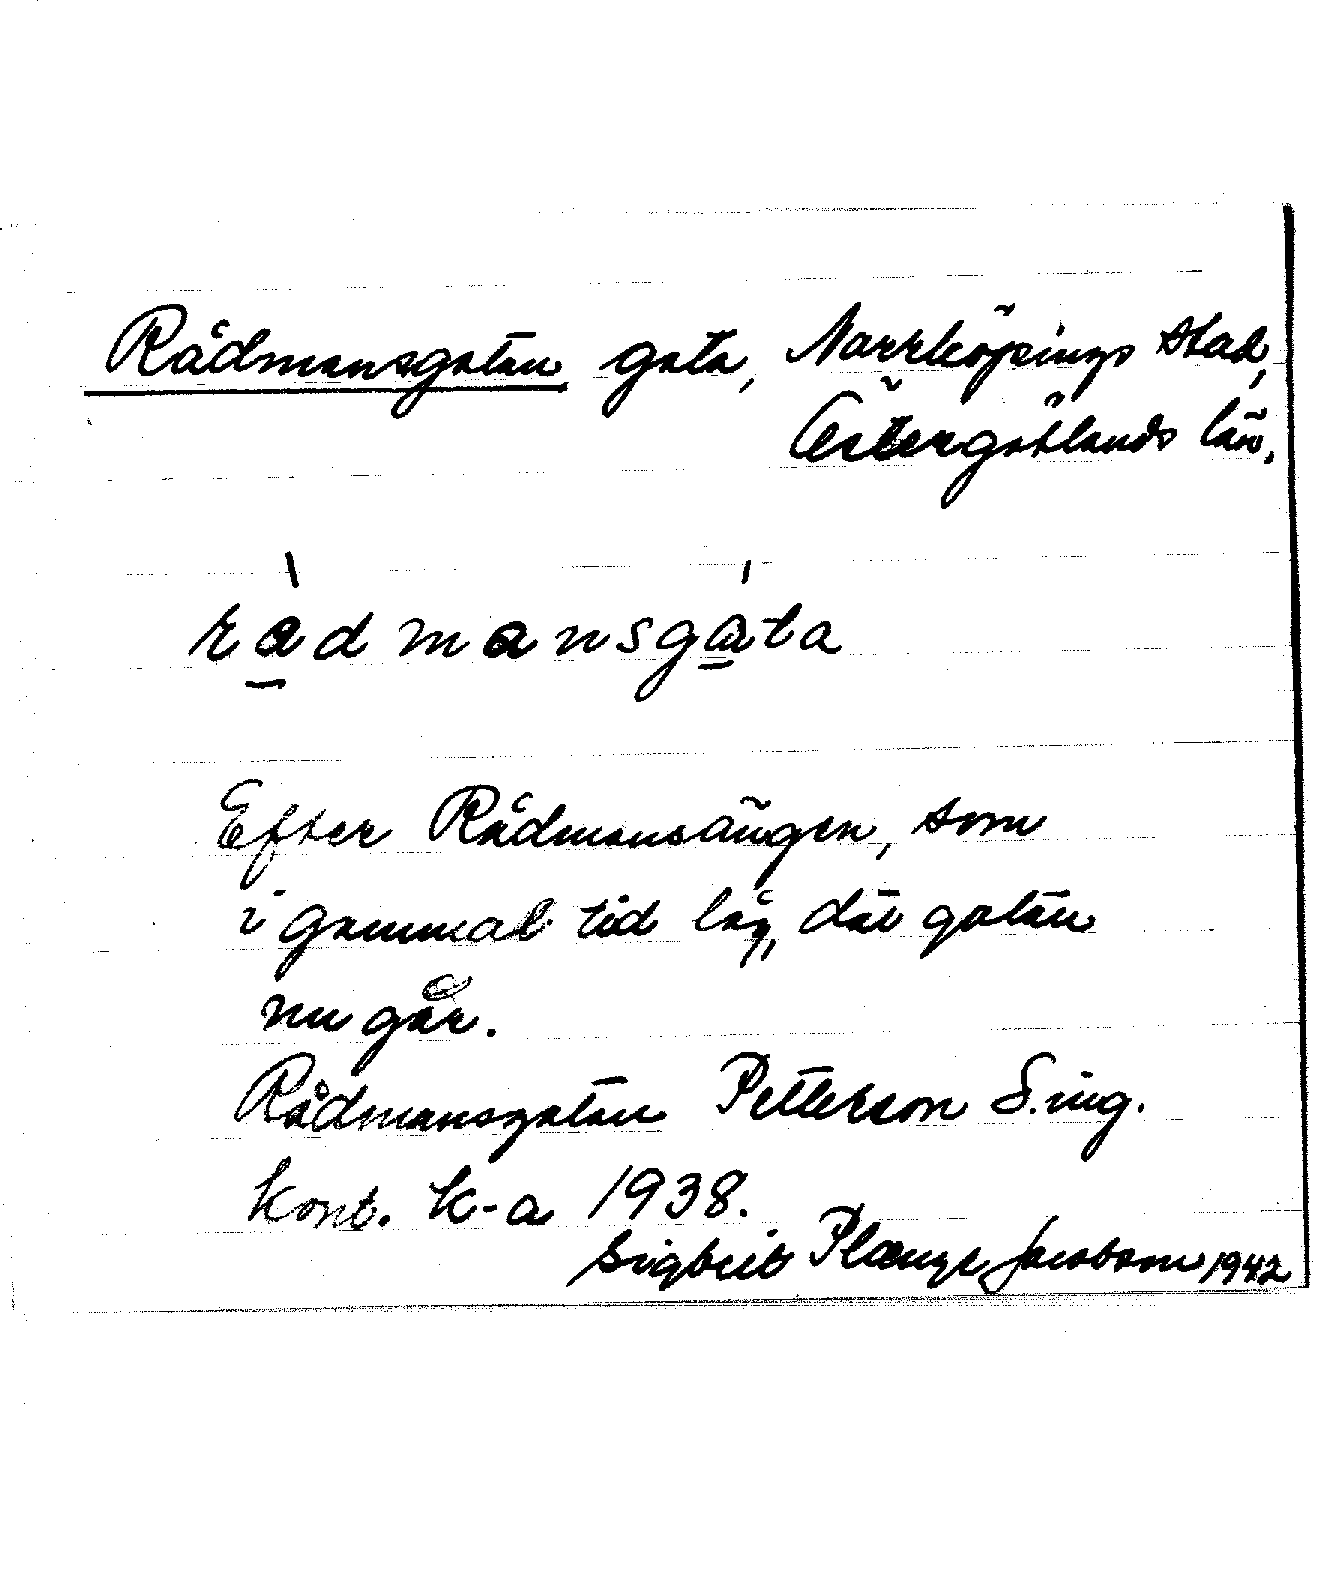 Rådmansgatan gata, Norrköpings stad,
Östergötlands län.
rådmansgata
Efter Rådmansängen, som
i gammal tid låg, där gatan
nu går.
Rådmansgatan Petterson S.ing.
kont. k-a 1938.
Sigbrit Plænge Jacobson 1942